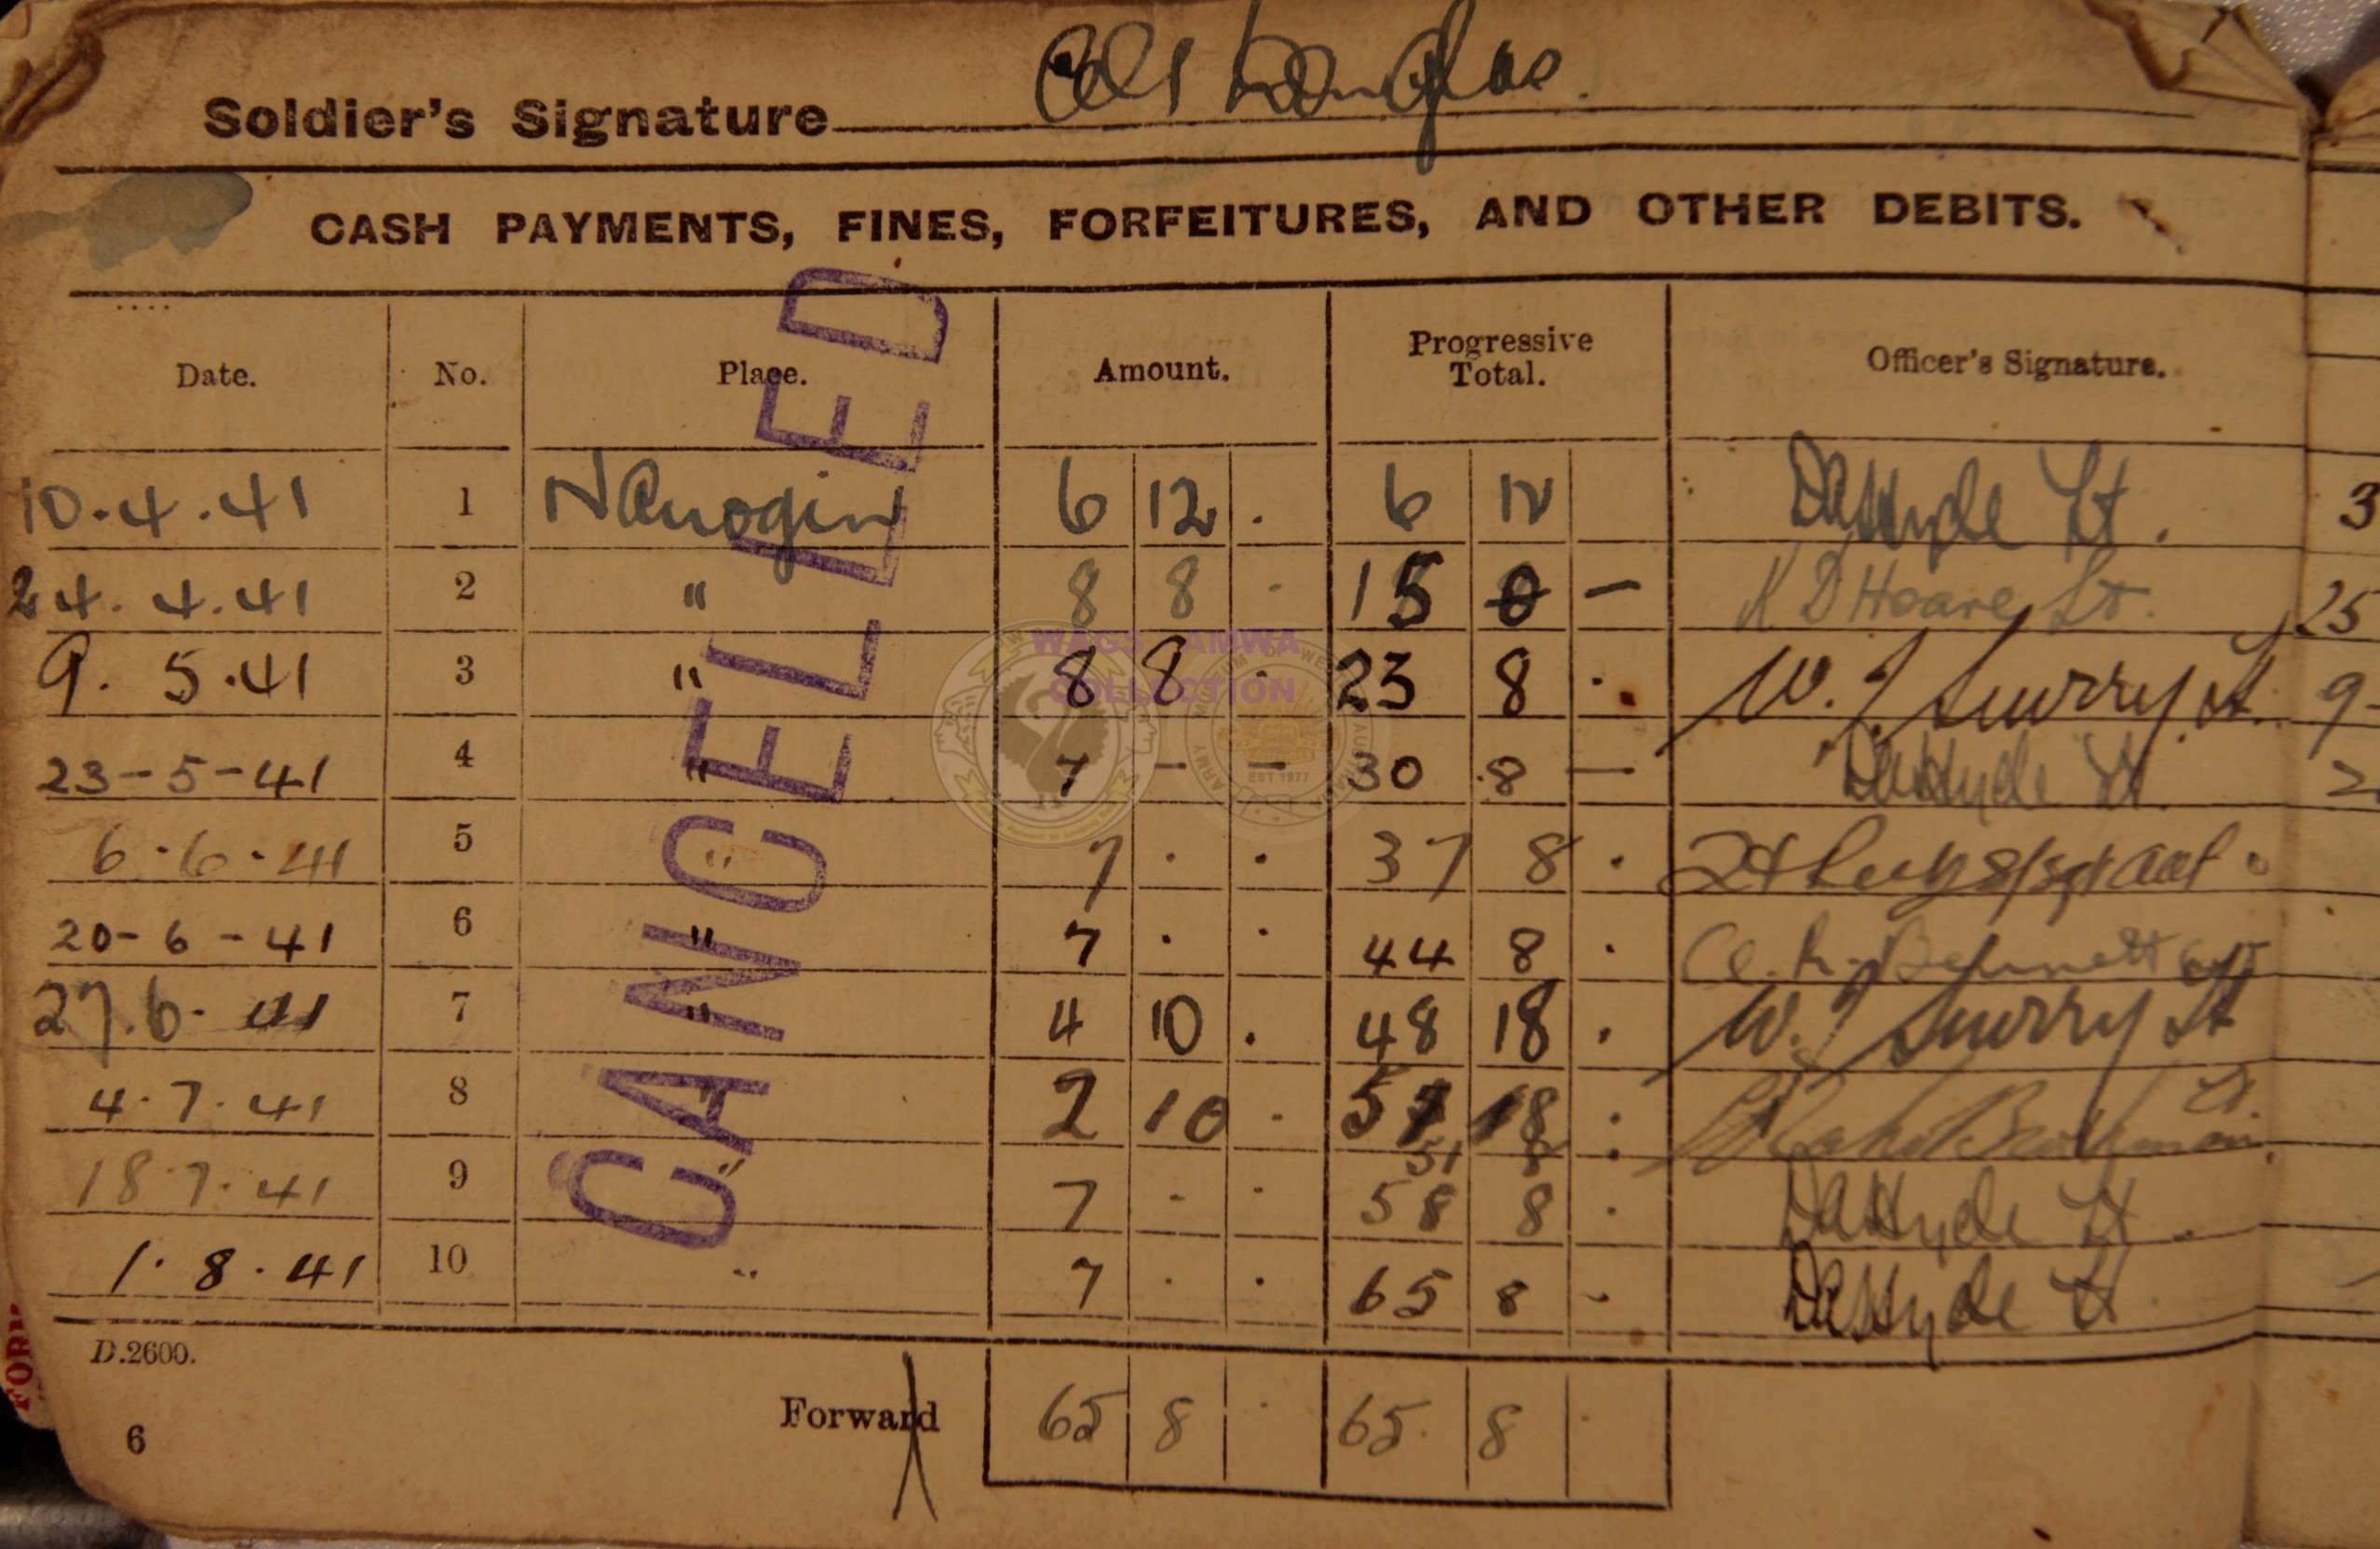 Soldier's Signature Douglas.
CASH PAYMENTS, FINES, FORFEITURES, AND OTHER DEBITS.
Date. No. Place. Amount. Progressive Total. Officer's Signature.
10.4.41 1 6 12 . 6 12 Hyde Lt. 3
24.4.41 2 " 8 8 - 15 0 — K D Hoare Lt. 25
9.5.41 3 " 8 8 - 23 8 . W. J Surry Lt. 9-
23-5-41 4 " 7 - - 30 .8 — Hyde Lt 2
6.6.41 5 " 7 . . 37 8 .
20-6-41 6 " 7 . . 44 8 . Bennett
27.6.41 7 " 4 10 . 48 18 . W. J Surry Lt
4.7.41 8 " 2 10 . 18 : Lt.
51 8 :
18.7.41 9 " 7 - - 58 8 . Hyde Lt.
1.8.41 10 " 7 . . 65 8 - Hyde Lt
CANCELLED
WAGS AMWA
COLLECTION
EST 1977
D.2600.
Forward 65 8 . 65. 8 .
6